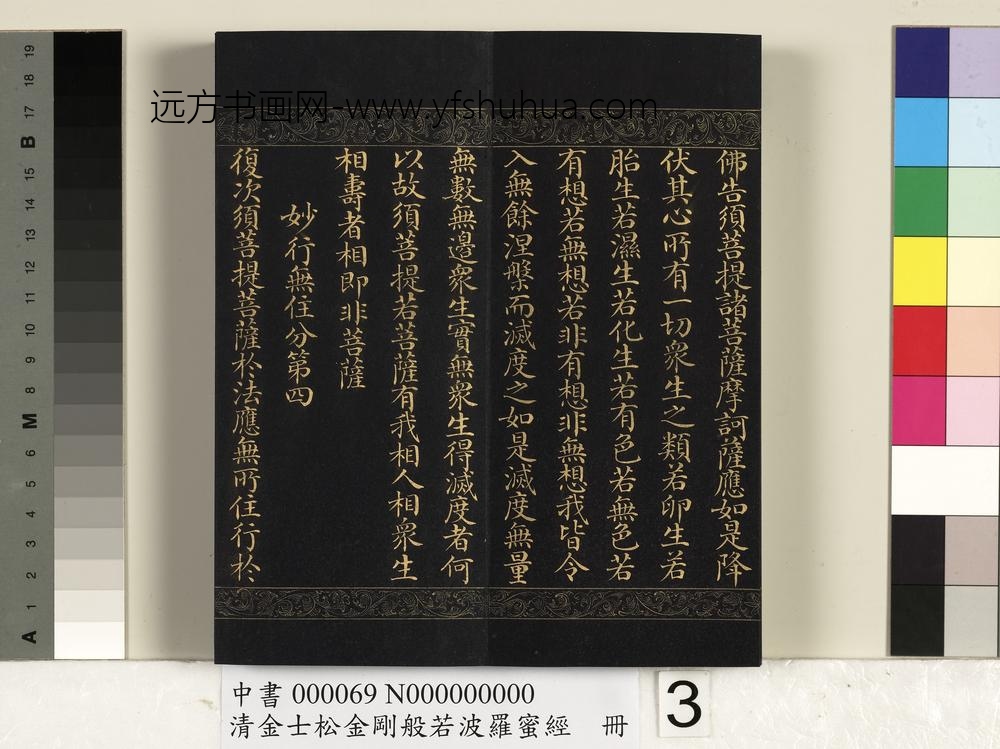 远方书画网-www.yfshuhua.com
佛告須菩提諸菩薩摩訶薩應如是降
伏其心所有一切衆生之類若卵生若
胎生若濕生若化生若有色若無色若
有想若無想若非有想非無想我皆令
入無餘涅槃而滅度之如是滅度無量
無數無邊衆生實無衆生得滅度者何
以故須菩提若菩薩有我相人相衆生
相壽者相即非菩薩
妙行無住分第四
復次須菩提菩薩於法應無所住行於
中書 000069 N000000000
清金士松金剛般若波羅蜜經 冊
3
A 1 2 3 4 5 6 M 8 9 10 11 12 13 14 15 B 17 18 19